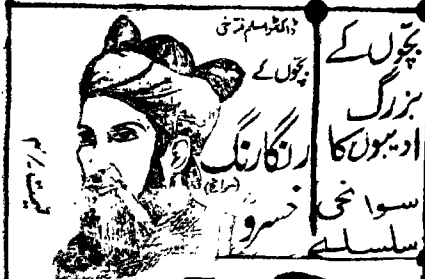 بچّوں کے
بزرگ
ادیبوں کا
سوانحی
سلسلے
ڈاکٹر اسلم فرخی
بچّوں کے
رنگا رنگ
خسرو
قیمت